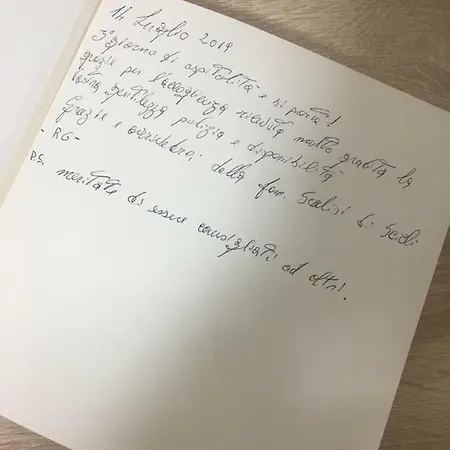 14 Luglio 2019
3° giorno di ospitalità e si parte!
grazie per l'accoglienza ricevuta molto gradita la
vostra gentilezza pulizia e disponibilità
Grazie e arrivederci dalla fam. Scalisi di Scicli
- RG -
P.S. meritate di essere consigliati ad altri.